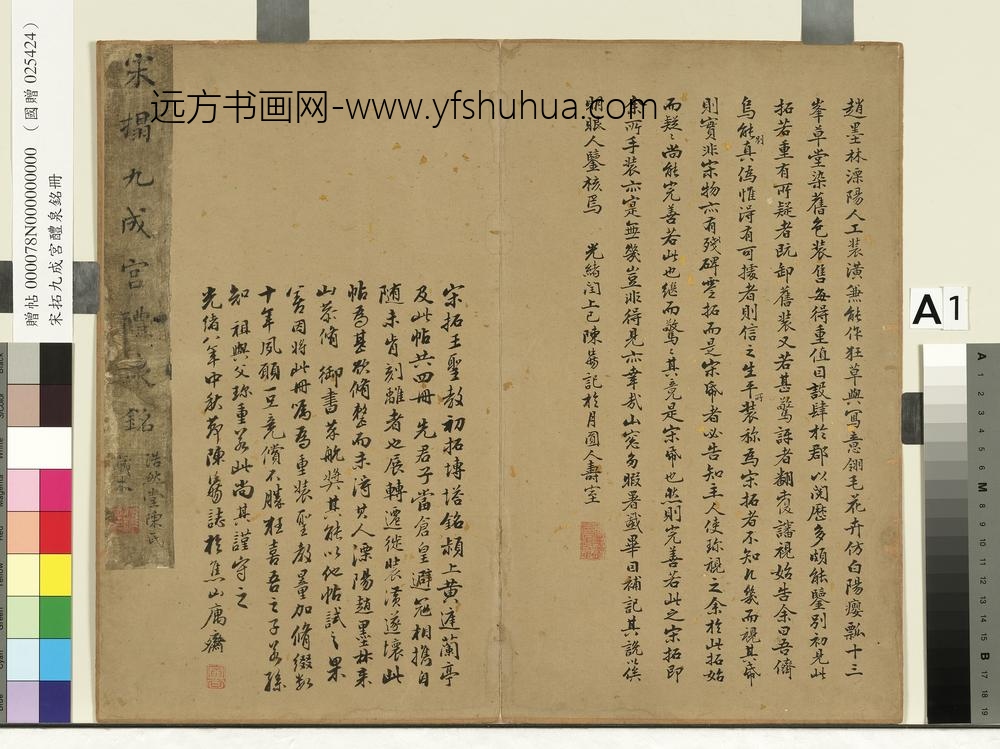 趙墨林溧陽人工裝潢無能作狂草與寫意翎毛花卉仿白陽癭瓢十三
峯草堂染舊色裝售每得重值因設肆於郡以閱歷多頗能鑒別初見此
拓若重有所疑者既卸舊裝又若甚驚訝者翻覆審視始告余曰吾儕
烏能別真偽惟得有可據者則信之生平所裝称為宋拓者不知凡幾而視其帋
則實非宋物亦有殘碑零拓而是宋帋者必告知主人使珍視之余於此拓始
而疑疑尚能完善若此也繼而驚驚其竟是宋帋也然則完善若此之宋拓即
余所手裝亦寔無幾豈非得見亦幸哉山窓多暇署籤畢因補記其說以俟
明眼人鑒核焉 光緒閏上巳陳 記於月圓人壽室
宋拓王聖教初拓塼塔銘潁上黃庭蘭亭
及此帖共四冊先君子當倉皇避寇相攜自
随未肯刻離者也展轉遷徙裝潢遂壞此
帖為甚欲脩整而未得其人溧陽趙墨林來
山茶脩御書 其能以他帖試之果
善因將此冊屬為重裝聖教量加脩綴數
十年夙願一旦竟償不勝狂喜吾之子若孫
知祖與父珍重若此尚其謹守之
光緒八年中秋節陳 誌於焦山 齋
宋搨九成宮醴泉銘
浩 堂陳氏
藏本
远方书画网-www.yfshuhua.com
贈帖 000078N000000000 （國贈 025424）
宋拓九成宮醴泉銘冊
A1